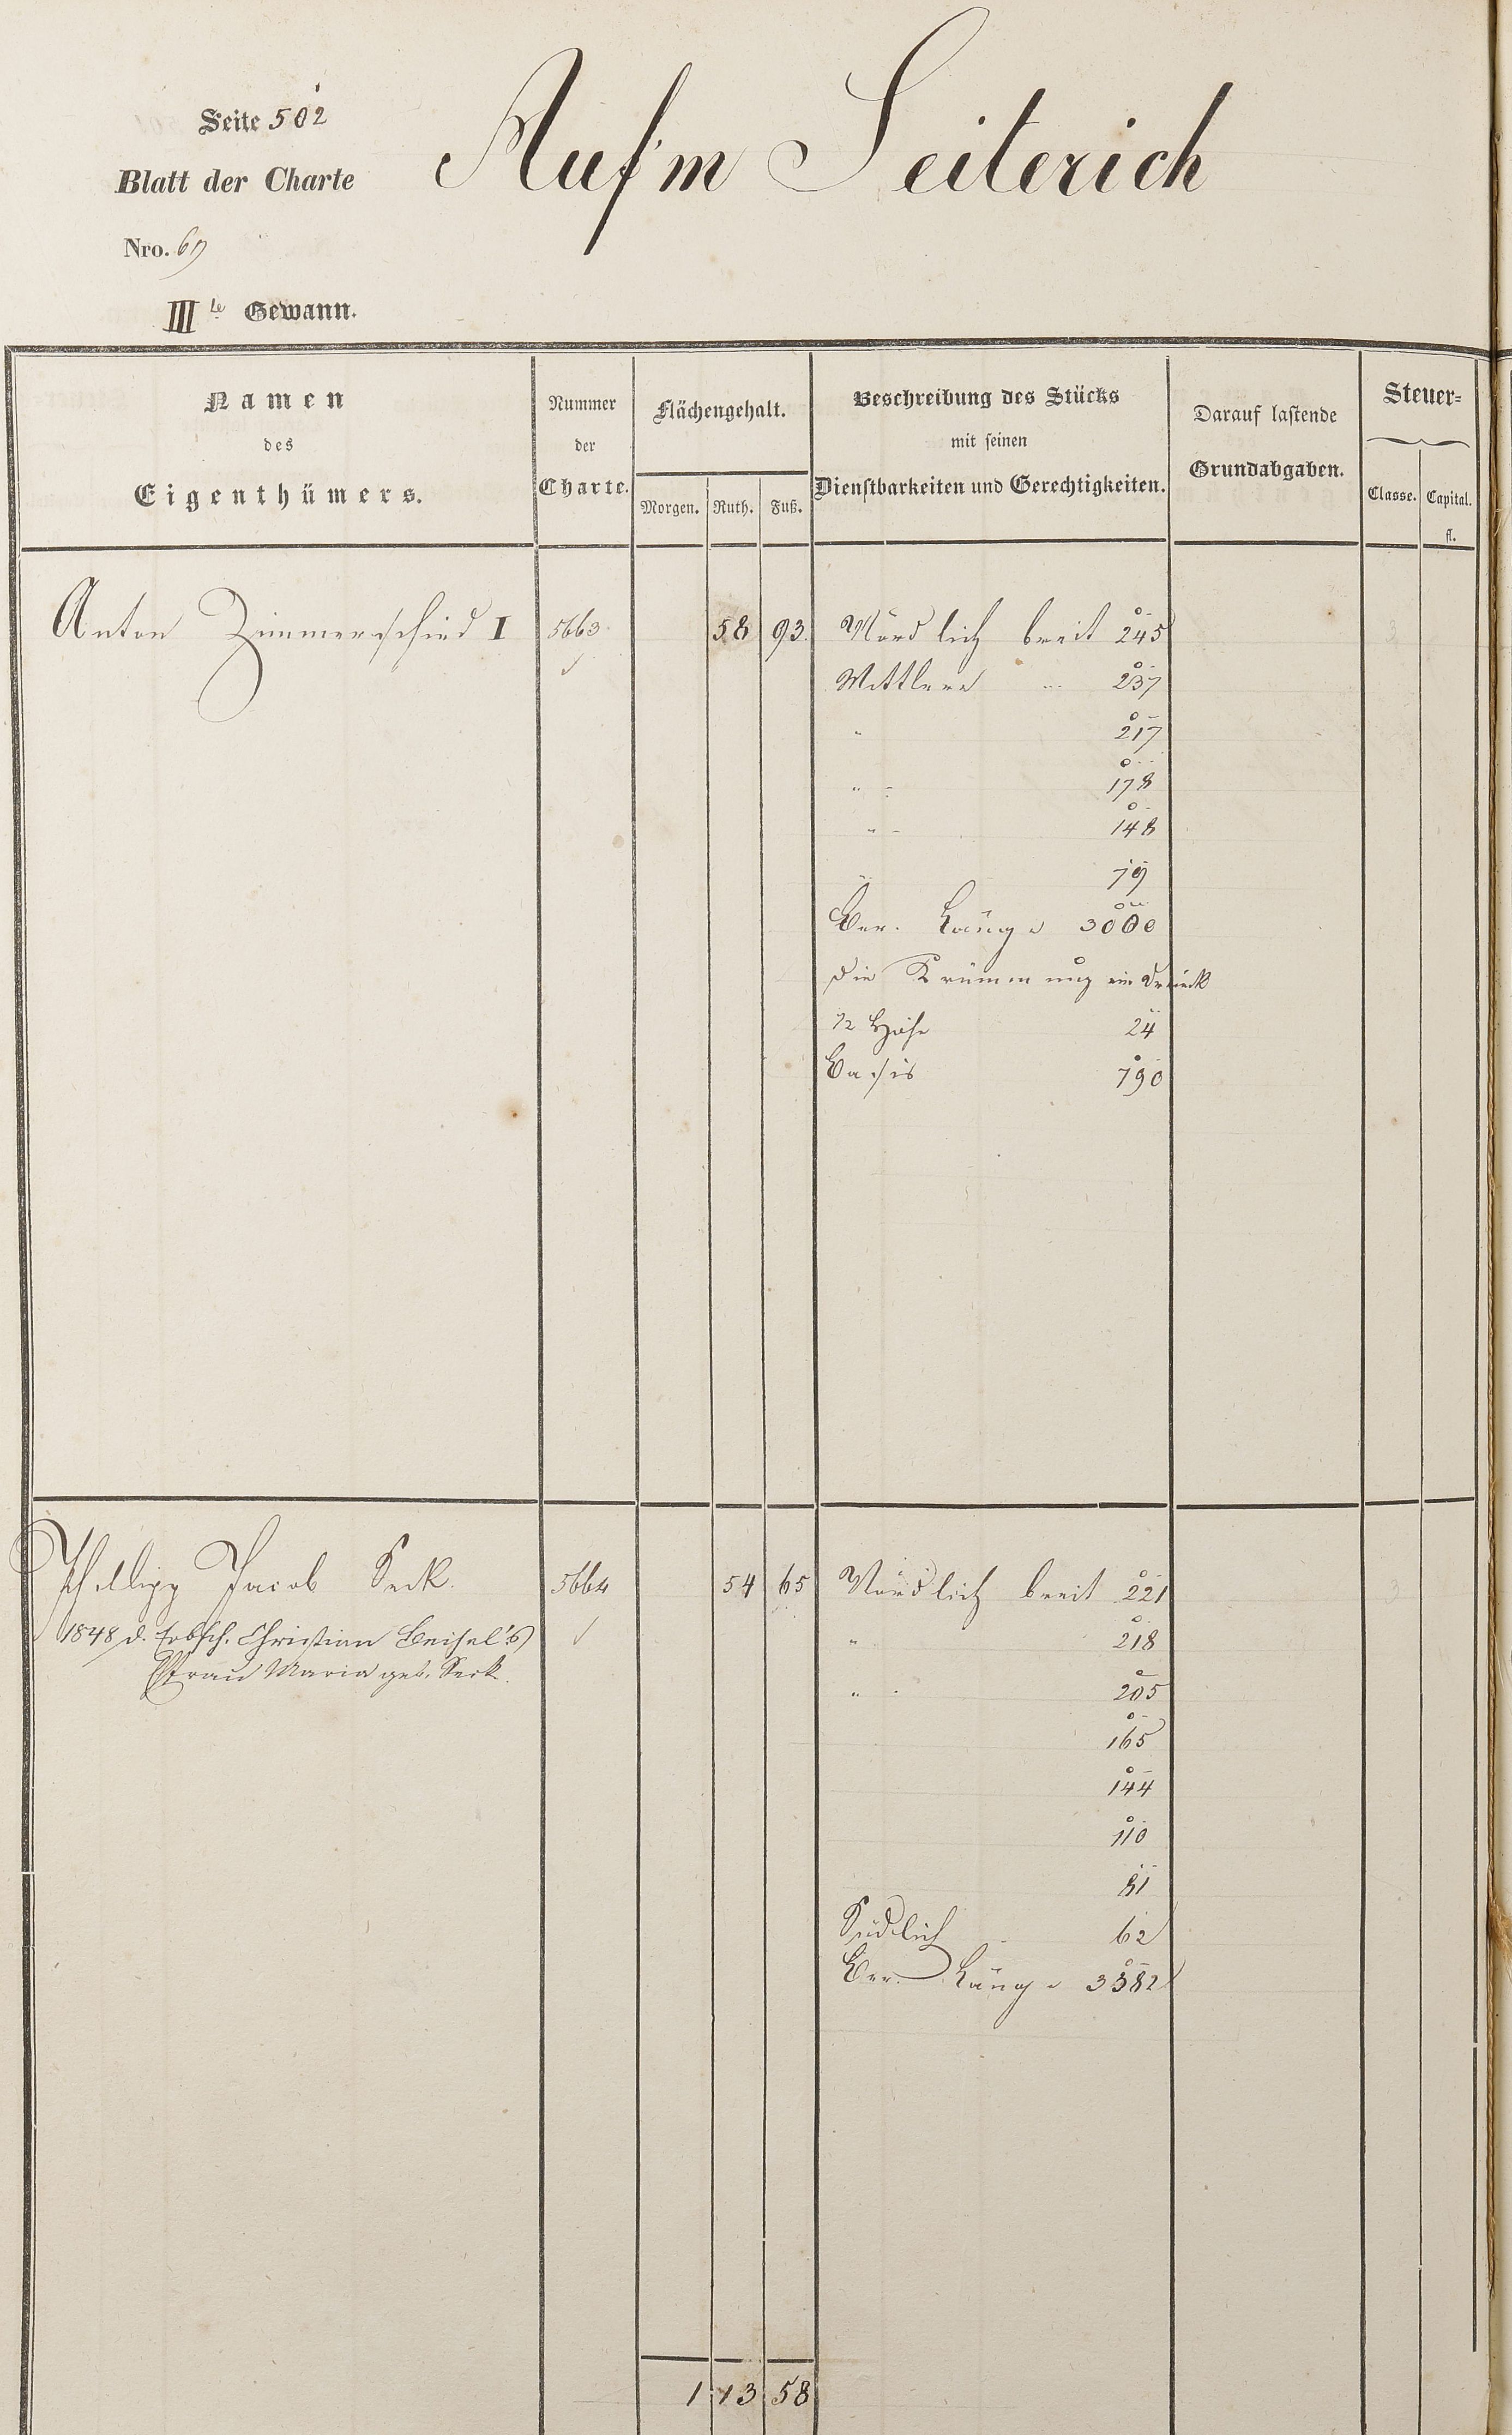 Seite 502
Auf'm Seiterich
Blatt der Charte
Nro. 69
IIIte Gewann.
Namen
des
Eigenthümers.
Nummer
der
Charte.
Flächengehalt.
Morgen. Ruth. Fuß.
Beschreibung des Stücks
mit seinen
Dienstbarkeiten und Gerechtigkeiten.
Darauf lastende
Grundabgaben.
Steuer=
Classe. Capital.
fl.
Anton Zimmerschied I 5663 58 93. Nördlich breit 245 3
Mittlere " 237
" 217
" 178
" 148
" 79
Ber. Länge 3000
Die Krümmung ein Dreieck
1/2 Höhe 24
Basis 790
Philipp Jacob Seck. 5664 54 65 Nördlich breit 221 3
1848 d. Erbsch. Christian Beisel's " 218
Efrau Maria geb. Seck. " 205
165
144
110
81
Südlich 62
Ber. Länge 3382
1 13 58